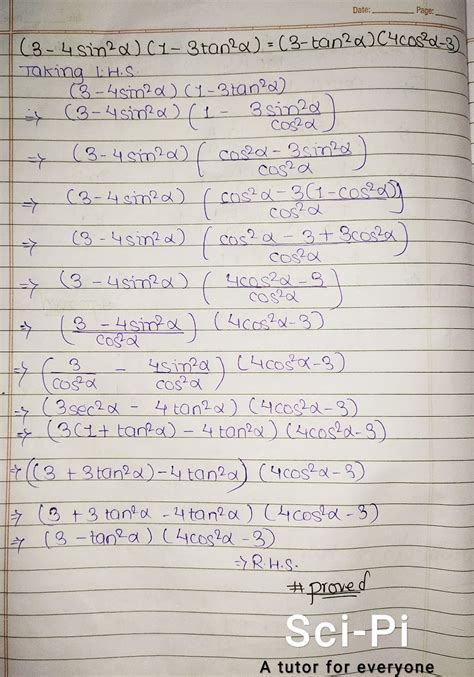 Date: Page:
(3-4sin²α)(1-3tan²α)=(3-tan²α)(4cos²α-3)
Taking L.H.S
(3-4sin²α)(1-3tan²α)
⇒ (3-4sin²α)(1 - 3sin²α/cos²α)
⇒ (3-4sin²α)(cos²α-3sin²α/cos²α)
⇒ (3-4sin²α)(cos²α-3(1-cos²α)/cos²α)
⇒ (3-4sin²α)(cos²α-3+3cos²α/cos²α)
⇒ (3-4sin²α)(4cos²α-3/cos²α)
⇒ (3-4sin²α/cos²α)(4cos²α-3)
⇒ (3/cos²α - 4sin²α/cos²α)(4cos²α-3)
⇒ (3sec²α - 4tan²α)(4cos²α-3)
⇒ (3(1+tan²α)-4tan²α)(4cos²α-3)
⇒ ((3+3tan²α)-4tan²α)(4cos²α-3)
⇒ (3+3tan²α-4tan²α)(4cos²α-3)
⇒ (3-tan²α)(4cos²α-3)
⇒ R.H.S.
# proved
Sci-Pi
A tutor for everyone